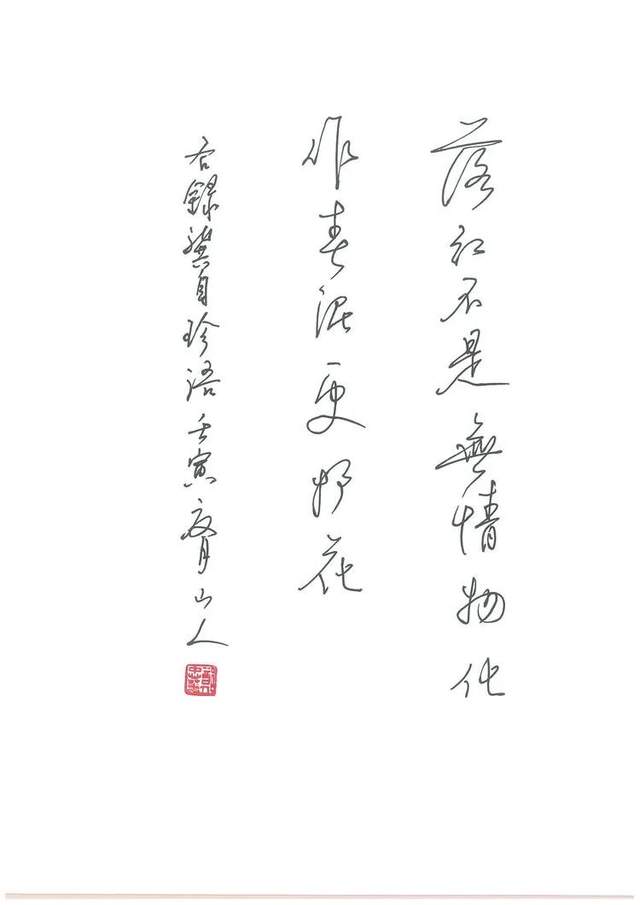 落红不是無情物化
作春泥更护花
右録龔自珍語壬寅山人